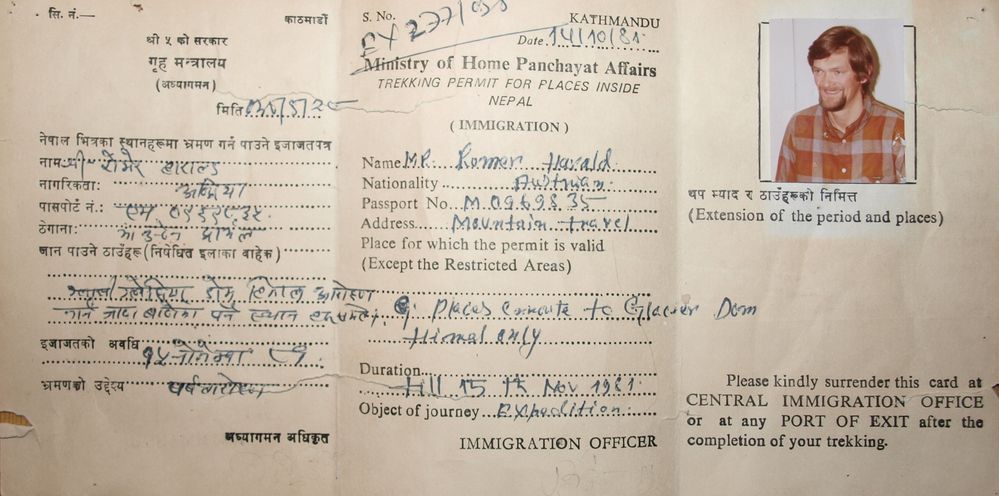 सि. नं.
काठमाडौं
श्री ५ को सरकार
गृह मन्त्रालय
(अध्यागमन)
मिति
नेपाल भित्रका स्थानहरूमा भ्रमण गर्न पाउने इजाजतपत्र
नाम श्री रोमेर हाराल्ड
नागरिकता:
पासपोर्ट नं.: एम ०९६९८३५
ठेगाना: माउन्टेन ट्राभल
जान पाउने ठाउँहरू (निषेधित इलाका बाहेक)
इजाजतको अवधि १५ नोभेम्बर ८१
भ्रमणको उद्देश्य पर्वतारोहण
अध्यागमन अधिकृत
S. No. EX 277/038
KATHMANDU
Date 14/10/81
Ministry of Home Panchayat Affairs
TREKKING PERMIT FOR PLACES INSIDE
NEPAL
(IMMIGRATION)
Name MR. Romer Harald
Nationality Austrian
Passport No. M 0969835
Address Mountain travel
Place for which the permit is valid
(Except the Restricted Areas)
Places enroute to Glacier Dom
Himal only
Duration
till 15 Nov 1981
Object of journey Expedition
IMMIGRATION OFFICER
थप म्याद र ठाउँहरूको निमित्त
(Extension of the period and places)
Please kindly surrender this card at
CENTRAL IMMIGRATION OFFICE
or at any PORT OF EXIT after the
completion of your trekking.